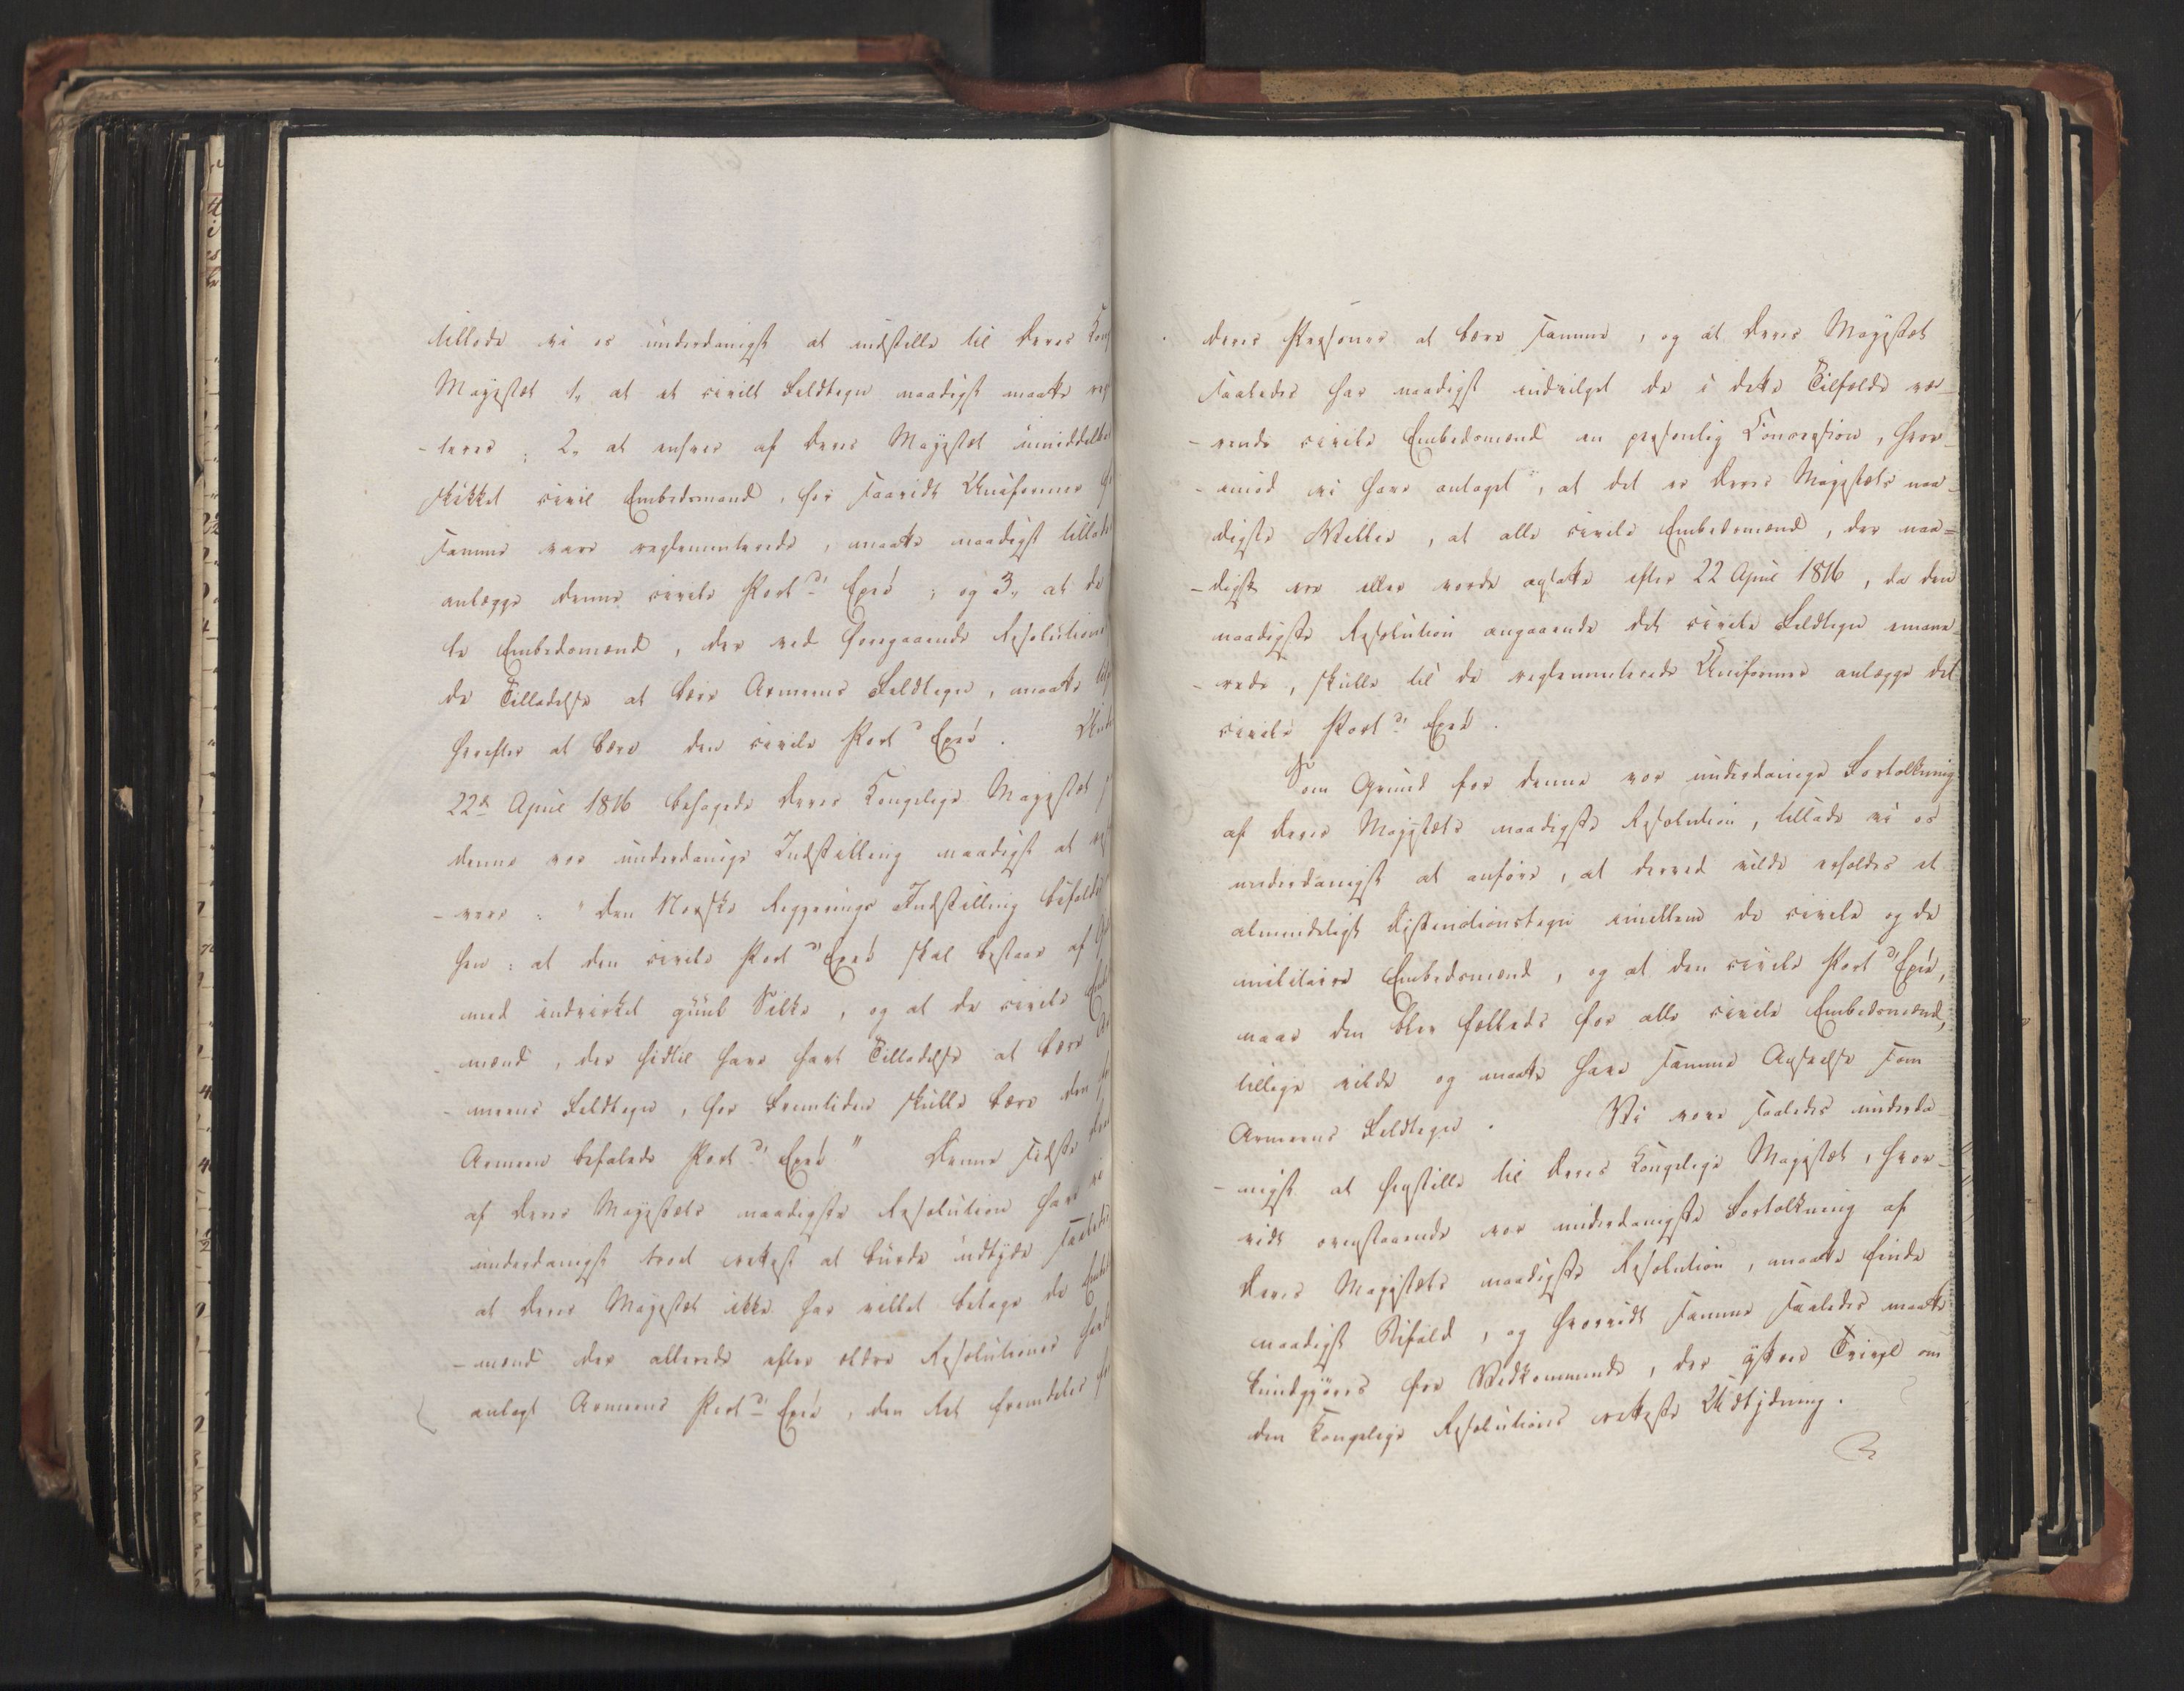 tillade vi os underdanigst at indstille til Deres Kong
Majestæt 1, at et civilt Feldtegn naadigst maatte reg
-teres; 2, at enhver af Deres Majestæt umiddelba
skikket civil Embedsmand, for saavidt Uniformer
samme vare reglementerede, maatte naadigst tillade
anlægge denne civile Port d' Epeé; og 3, at de
le Embedsmænd, der ved foregaaende Resolutione
de Tilladelse at bære Armeens Feldtegn, maatte
herefter at bære den civile Port d' Epeé. Und
22de April 1816 behagede Deres Kongelige Majestæt
denne vor underdanige Indstilling naadigst at
-vere: "Den Norske Regjerings Indstilling bifaldes
hen: at den civile Port d' Epeé skal bestaae af
med indvirket guul Silke, og at de civile Emb
-mænd, der hidtil have havt Tilladelse at bære Ar
-meens Feldtegn, for Fremtiden skulle bære den
Armeen befalede Port d' Epeé" Denne sidste
af Deres Majestæts naadigste Resolution have vi
underdanigst troet rettest at burde udtyde saaledes
at Deres Majestæt ikke har villet betage de Embed
-mænd der allerede efter ældre Resolutioner havde
anlagt Armeens Port d' Epeé, den Ret fremdeles
deres Personer at bære samme, og at Deres Majestæt
saaledes har naadigst indvilget de i dette Tilfælde væ-
-rende civile Embedsmænd en personlig Concession, hvor-
-imod vi have antaget, at det er Deres Majestæts naa-
digste Villie, at alle civile Embedsmænd, der naa=
-digst ere eller vorde ansatte efter 22 April 1816, da den
naadigste Resolution angaaende det civile Feldtegn emane-
-rede, skulle til de reglementerede Uniformer anlægge det
civile Port d' Epeé.
Som Grund for denne vor underdanige Fortolkning
af Deres Majestæts naadigste Resolution, tillade vi os
underdanigst at anføre, at derved vilde erholdes et
almindeligt Distinctionstegn imellem de civile og de
militaire Embedsmænd, og at den civile Port d' Epeé,
naar den blev fælleds for alle civile Embedsmænd,
tillige vilde og maatte have samme Anseelse som
Armeens Feldtegn. Vi vove saaledes underda-
-nigst at henstille til Deres Kongelige Majestæt, hvor-
vidt ovenstaaende vor underdanigste Fortolkning af
Deres Majestæts naadigste Resolution, maatte finde
naadigst Bifald, og hvorvidt samme saaledes maatte
kundgjøres for Vedkommende, der yttre Tvivl om
den Kongelige Resolutions retteste Udtydning.